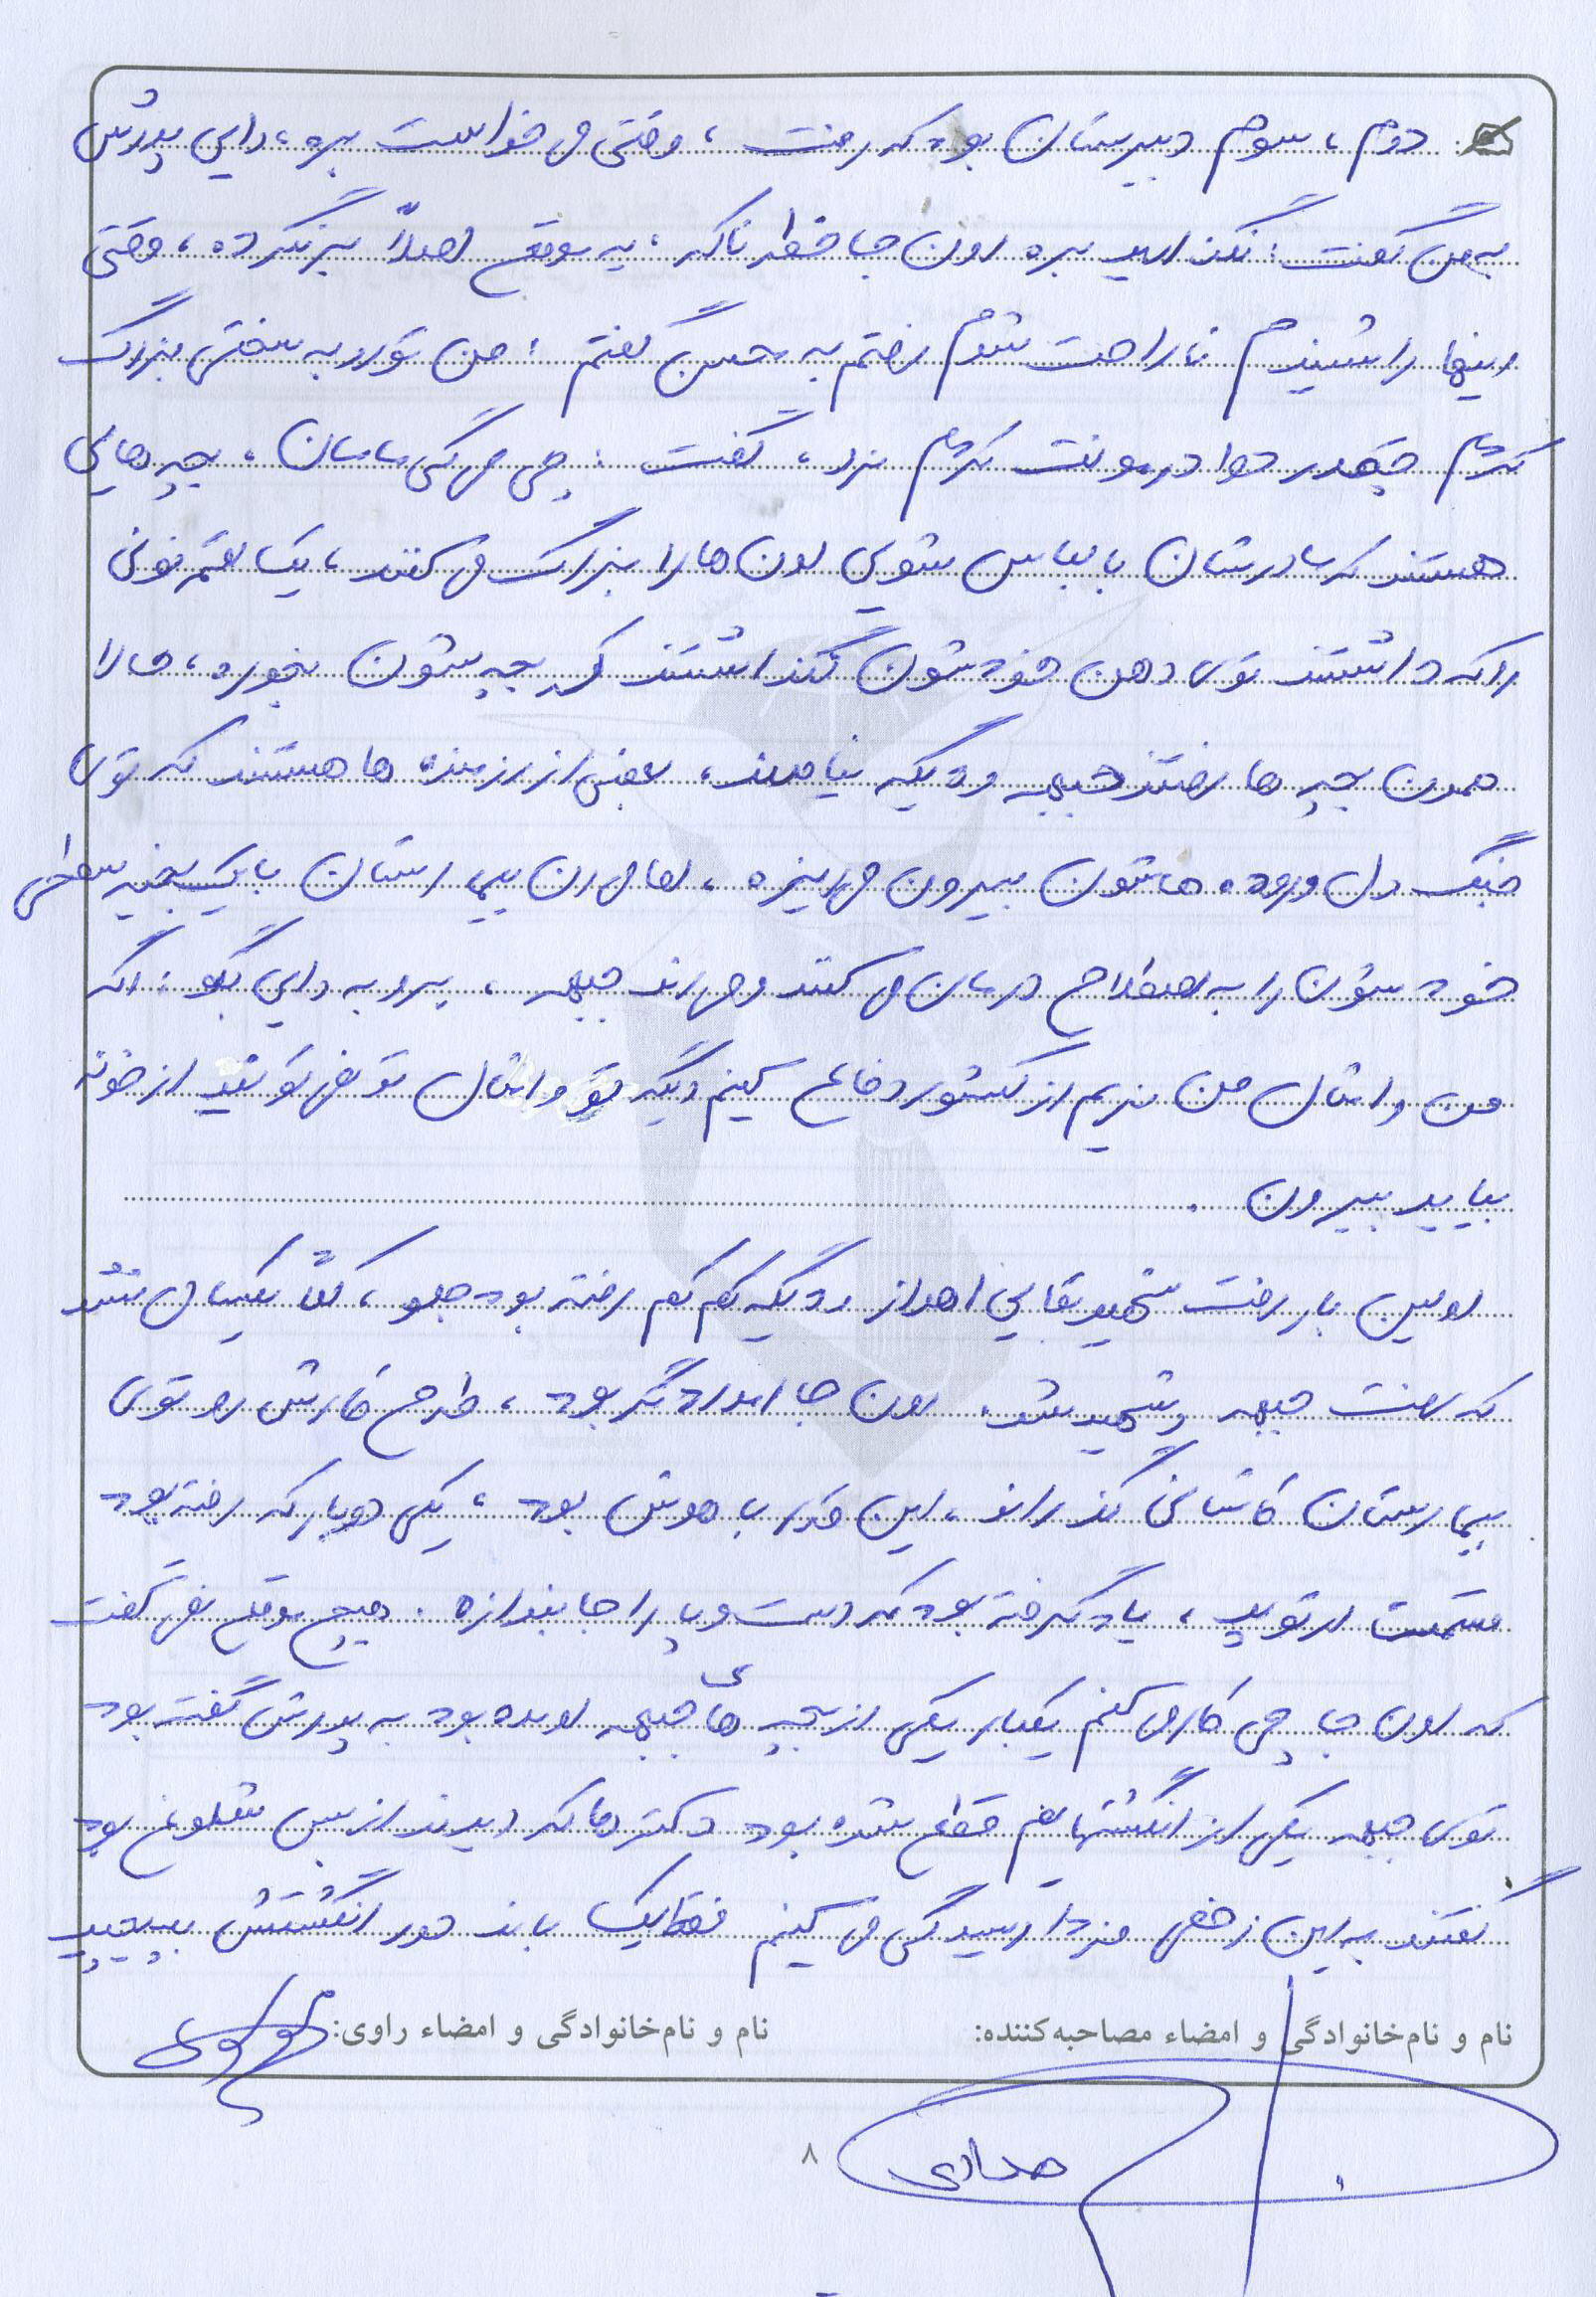 دوم، سوم دبیرستان بود که رفت، وقتی می خواست بره، دایی پدرش
به من گفت: نگذارید بره اون جا خطرناکه، یه موقع اصلاً برنگرده، وقتی
اینها را شنیدم ناراحت شدم رفتم به حسن گفتم: من تو رو به سختی بزرگ
کردم چقدر دوا درمونت کردم نرو، گفت: چی می گی مامان، بچه هایی
هستند که مادرشان با لباس شویی اون ها را بزرگ می کنند، یک لقمه نونی
را که داشتند توی دهن خودشون نگذاشتند که بچه شون بخوره، حالا
همون بچه ها رفتند جبهه و دیگه نیامدند، بعضی از رزمنده ها هستند که توی
جنگ دل و روده هاشون بیرون می ریزه، اما می رن بیمارستان با یک بخیه سطحی
خودشون را به اصطلاح درمان می کنند و می رند جبهه، برو به دایی بگو: اگه
من و امثال من نریم از کشور دفاع کنیم دیگه تو و امثال تو نمی تونید از خونه
بیایید بیرون.
اولین بار رفت شهید بقایی اهواز و دیگه کم کم رفته بود جلو، کلاً یکسال نشد
که رفت جبهه و شهید شد. اون جا امدادگر بود، طرح کارش رو توی
بیمارستان کاشانی گذراند، این قدر با هوش بود، یکی دوبار که رفته بود
قسمت ارتوپد، یاد گرفته بود که دست و پا را جا بندازه. هیچ موقع نمی گفت
که اون جا چی کار می کنم یکبار یکی از بچه های جبهه اومده بود به پدرش گفته بود
توی جبهه یکی از انگشتهایم قطع شده بود دکترها که دیدند از بس شلوغ بود
گفتند به این زخمی فردا رسیدگی می کنیم فقط یک باند دور انگشتش بپیچید
نام و نام‌خانوادگی و امضاء مصاحبه‌کننده:
نام و نام‌خانوادگی و امضاء راوی:
۸